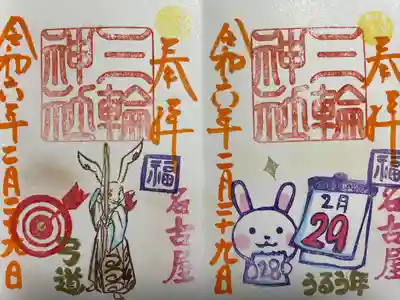 奉拝
三輪
神社
福
名古屋
令和六年二月二十九日
弓道
奉拝
三輪
神社
福
名古屋
令和六年二月二十九日
2月
29
28
うるう年